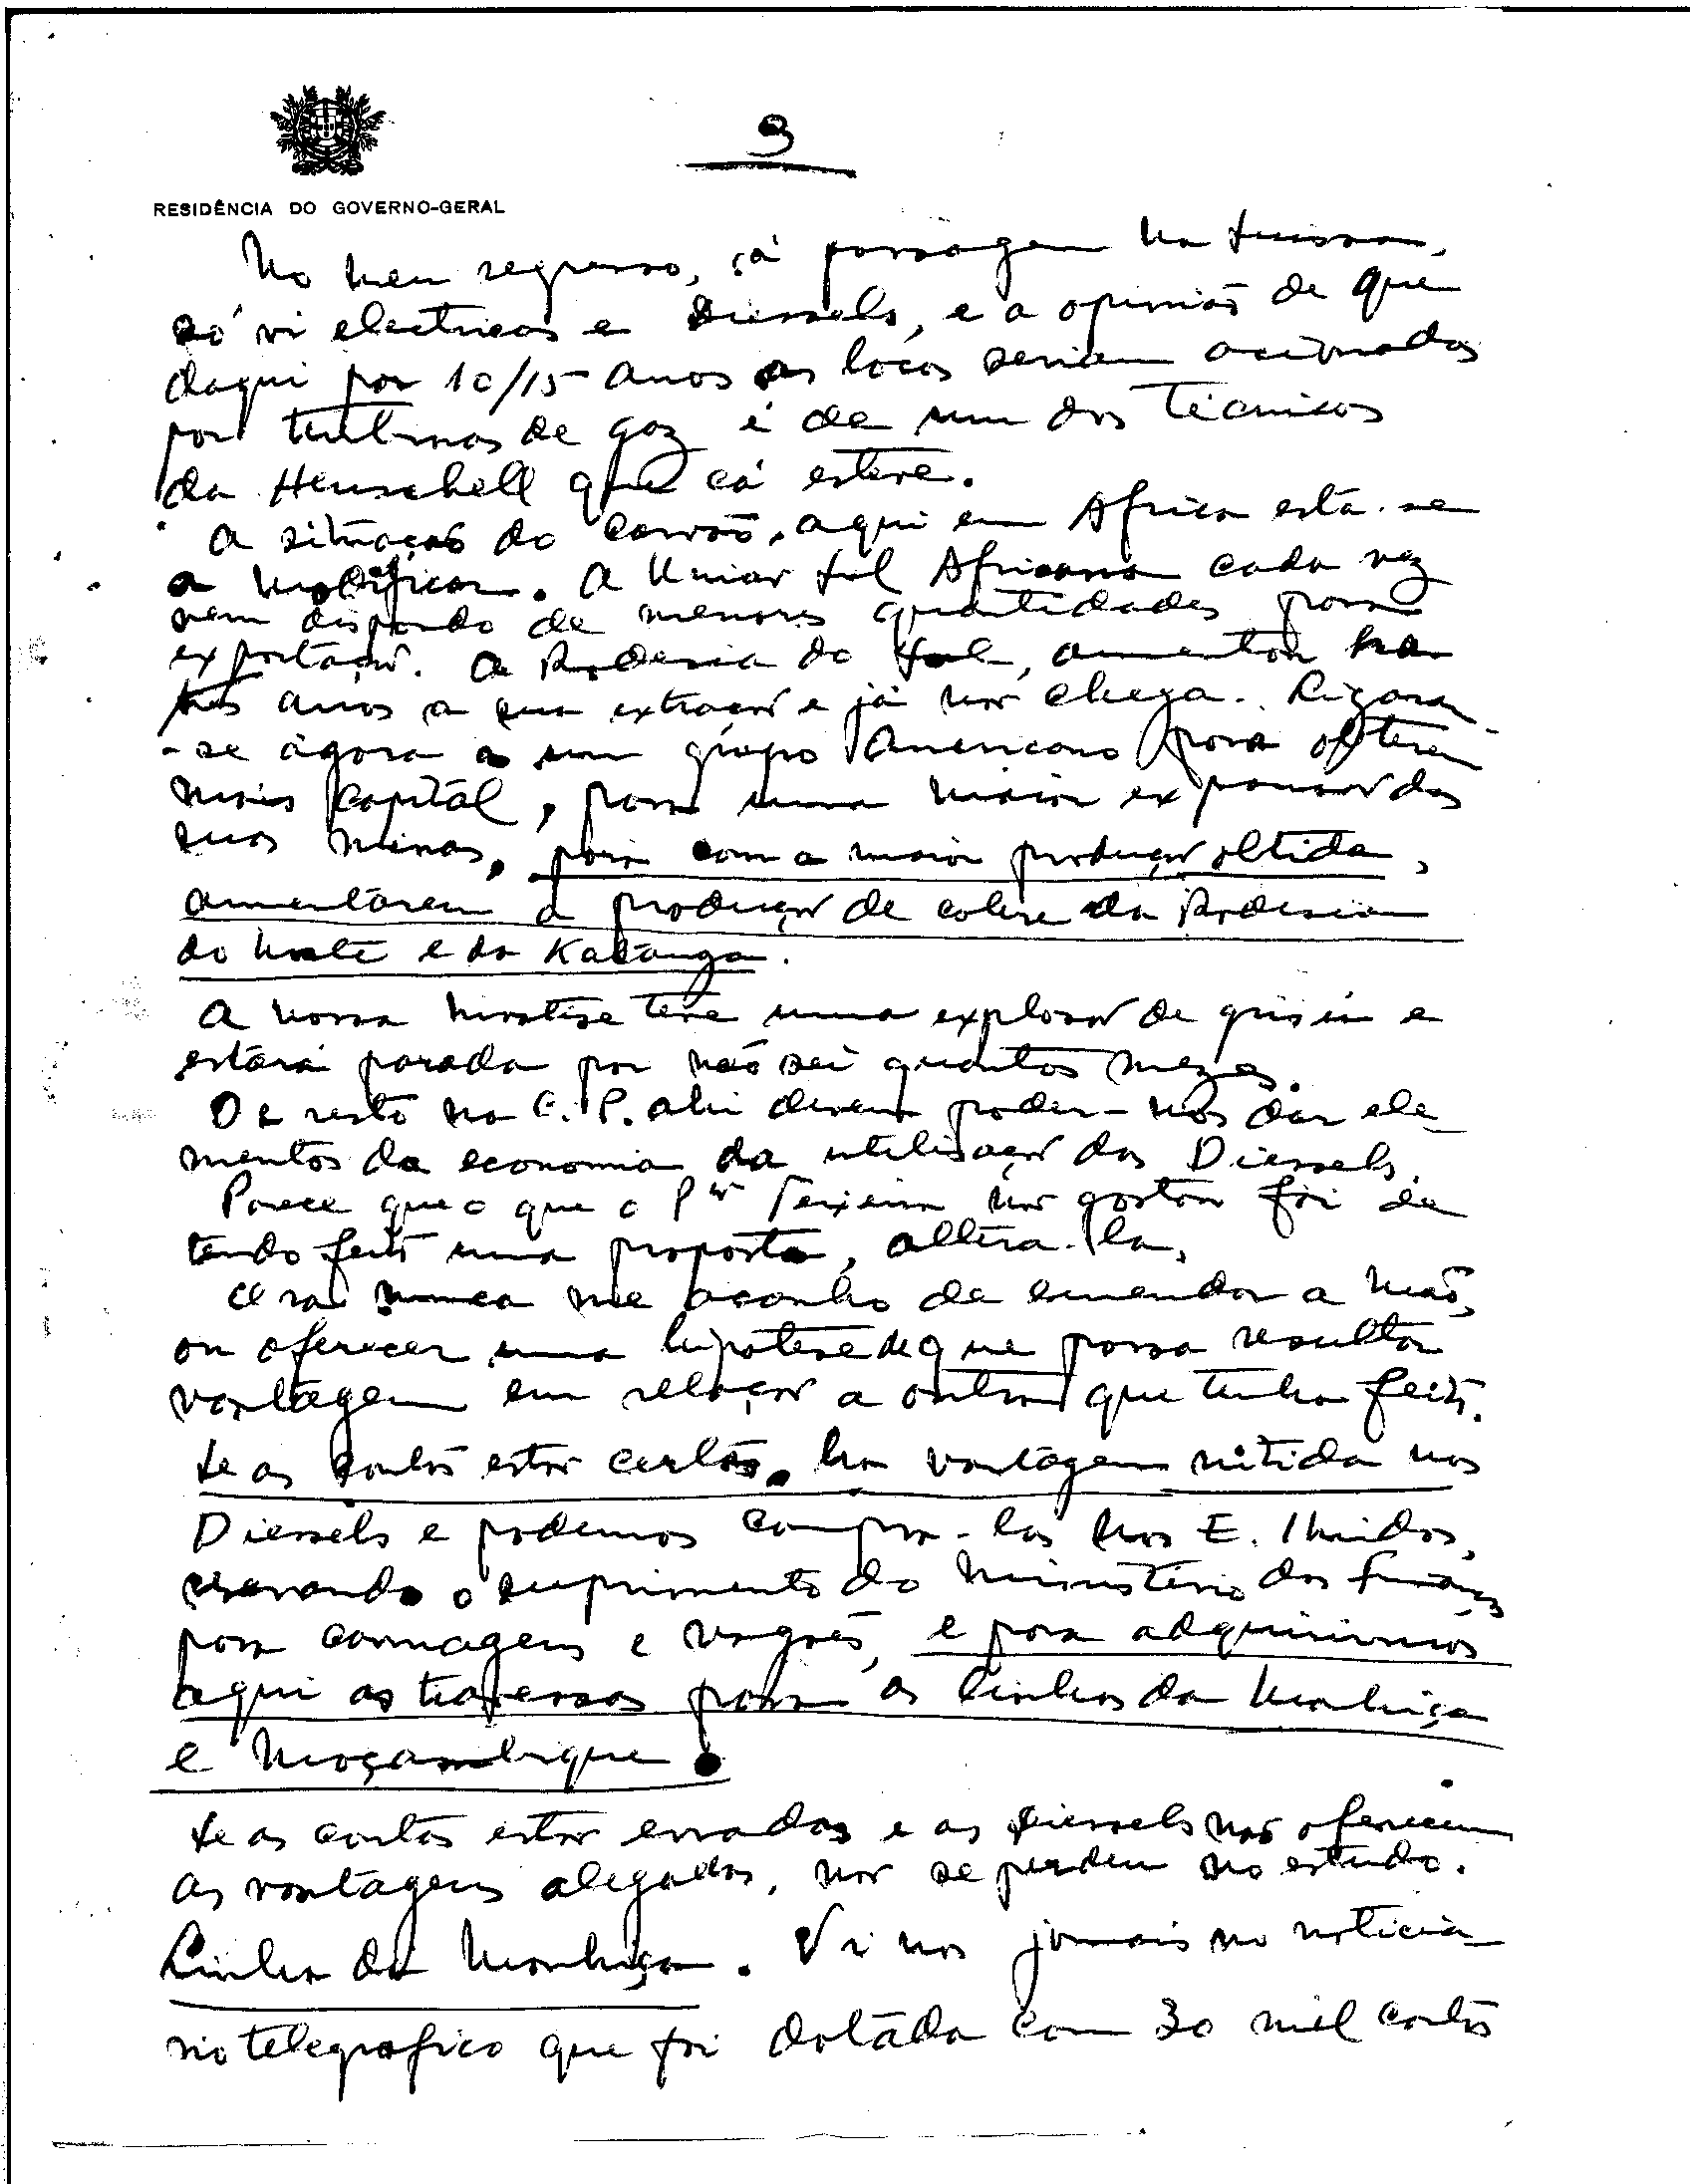 9
RESIDÊNCIA DO GOVERNO-GERAL
No meu regresso, á passagem na Suissa,
só vi electricas e Diessels, e a opinião de que
daqui por 10/15 anos as locos seriam acionadas
por turbinas de gaz é de um dos técnicos
da Henschell que cá esteve.
A situação do carvão, aqui em Africa está-se
a modificar. A União Sul Africana cada vez
vem dispondo de menores quantidades para
exportação. A Rodesia do Sul, aumentou ha
três anos a sua extração e já não chega. Ligaram-
-se agora a um grupo Americano para obterem
mais capital, para uma maior expansão das
suas minas, pois com a maior produção obtida,
aumentarem a produção de cobre da Rodesia
do Norte e da Katanga.
A nossa Moatize teve uma explosão de grisú e
estará parada por não sei quantos mezes.
De resto na C.P. ahi devem poder-nos dar ele-
mentos da economia da utilisação das Diessels.
Parece que o que o Teixeira não gostou foi de
tendo feito uma proposta, altera-la.
Ora nunca me acanho de emendar a mão,
ou oferecer uma hipotese de que possa resultar
vantagem em relação a outra que tenha feito.
Se as contas estão certas, ha vantagem nitida nas
Diessels e podemos compra-las nos E. Unidos,
reservando o suprimento do Ministério das Finanças
para carruagens e vagões, e para adquirirmos
aqui as travessas para as linhas da Manhiça
e Moçambique.
Se as contas estão erradas e as Diessels não oferecem
as vantagens alegadas, não se perdeu no estudo.
Linha da Manhiça. Vi nos jornais no noticiá-
rio telegrafico que foi dotada com 30 mil contos